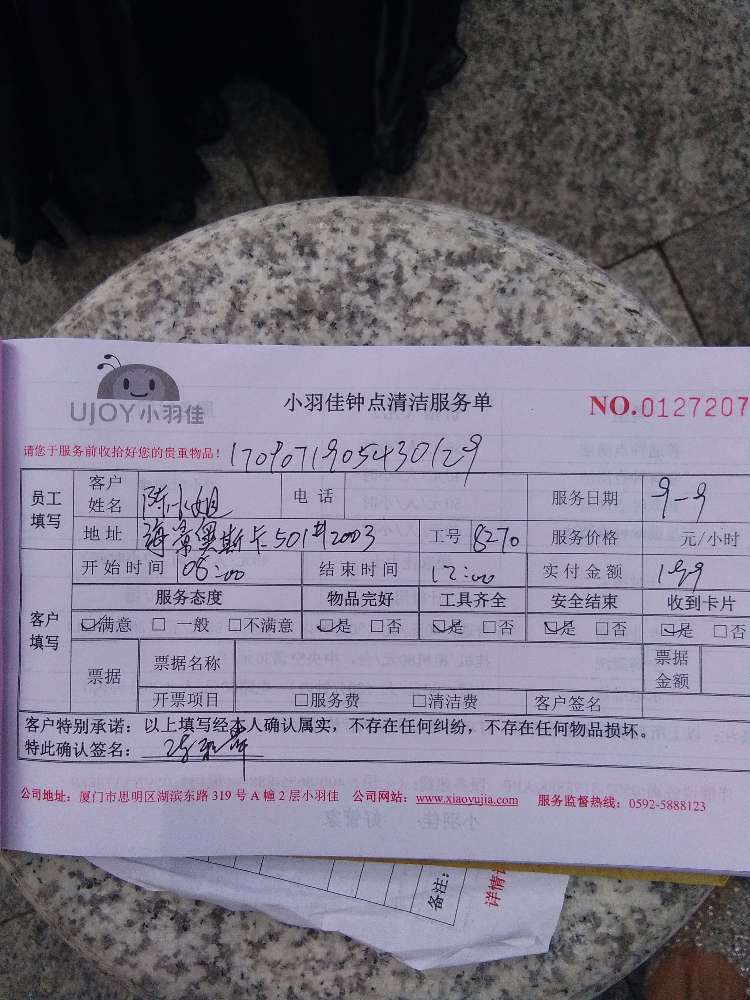 UJOY小羽佳
小羽佳钟点清洁服务单
NO.0127207
请您于服务前收拾好您的贵重物品！
员工填写 客户姓名 陈小姐 电话 服务日期 9-9
地址 海景奥斯卡501#2003 工号 8270 服务价格 元/小时
客户填写 开始时间 08:00 结束时间 12:00 实付金额
服务态度 物品完好 工具齐全 安全结束 收到卡片
☑满意 □一般 □不满意 ☑是 □否 ☑是 □否 ☑是 □否 ☑是 □否
票据 票据名称 票据金额
开票项目 □服务费 □清洁费 客户签名
客户特别承诺：以上填写经本人确认属实，不存在任何纠纷，不存在任何物品损坏。
特此确认签名：
公司地址：厦门市思明区湖滨东路 319 号 A 幢 2 层小羽佳 公司网站：www.xiaoyujia.com 服务监督热线：0592-5888123
备注：
详情